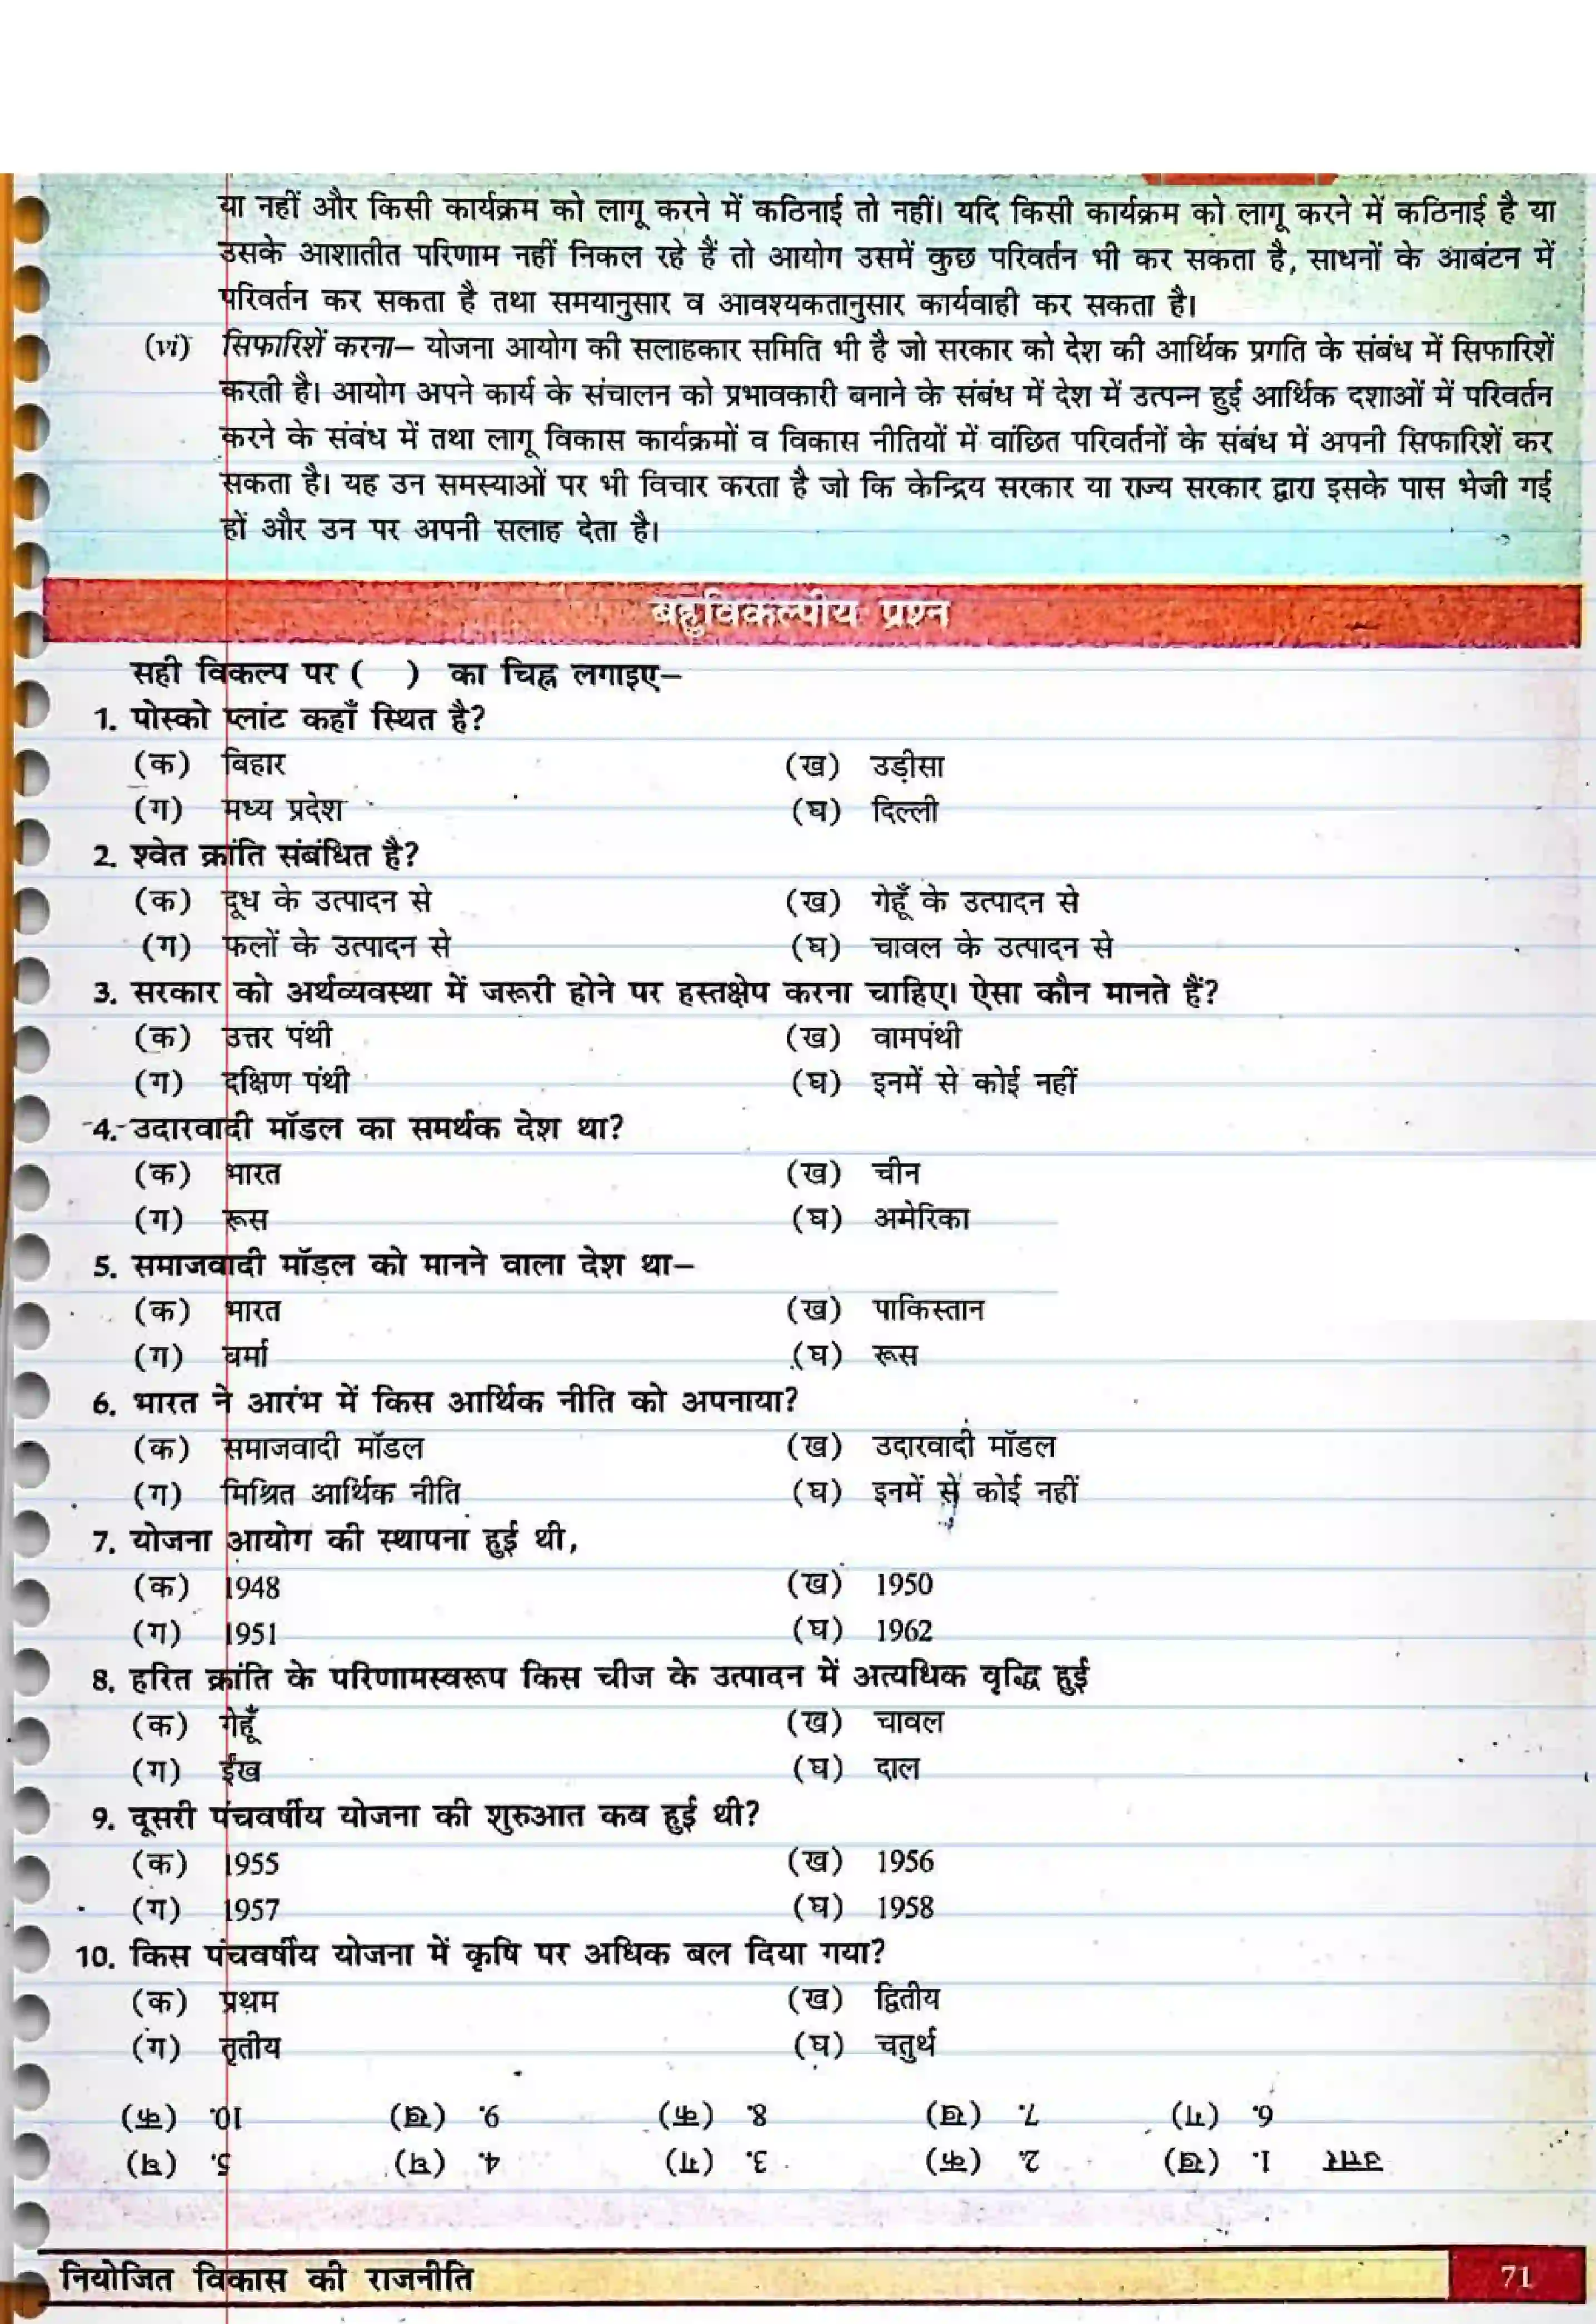 या नहीं और किसी कार्यक्रम को लागू करने में कठिनाई तो नहीं। यदि किसी कार्यक्रम को लागू करने में कठिनाई है या
उसके आशातीत परिणाम नहीं निकल रहे हैं तो आयोग उसमें कुछ परिवर्तन भी कर सकता है, साधनों के आबंटन में
परिवर्तन कर सकता है तथा समयानुसार व आवश्यकतानुसार कार्यवाही कर सकता है।
(vi) सिफारिशें करना– योजना आयोग की सलाहकार समिति भी है जो सरकार को देश की आर्थिक प्रगति के संबंध में सिफारिशें
करती है। आयोग अपने कार्य के संचालन को प्रभावकारी बनाने के संबंध में देश में उत्पन्न हुई आर्थिक दशाओं में परिवर्तन
करने के संबंध में तथा लागू विकास कार्यक्रमों व विकास नीतियों में वांछित परिवर्तनों के संबंध में अपनी सिफारिशें कर
सकता है। यह उन समस्याओं पर भी विचार करता है जो कि केन्द्रिय सरकार या राज्य सरकार द्वारा इसके पास भेजी गई
हों और उन पर अपनी सलाह देता है।
बहुविकल्पीय प्रश्न
सही विकल्प पर ( ) का चिह्न लगाइए–
1. पोस्को प्लांट कहाँ स्थित है?
(क) बिहार (ख) उड़ीसा
(ग) मध्य प्रदेश (घ) दिल्ली
2. श्वेत क्रांति संबंधित है?
(क) दूध के उत्पादन से (ख) गेहूँ के उत्पादन से
(ग) फलों के उत्पादन से (घ) चावल के उत्पादन से
3. सरकार को अर्थव्यवस्था में जरूरी होने पर हस्तक्षेप करना चाहिए। ऐसा कौन मानते हैं?
(क) उत्तर पंथी (ख) वामपंथी
(ग) दक्षिण पंथी (घ) इनमें से कोई नहीं
4. उदारवादी मॉडल का समर्थक देश था?
(क) भारत (ख) चीन
(ग) रूस (घ) अमेरिका
5. समाजवादी मॉडल को मानने वाला देश था–
(क) भारत (ख) पाकिस्तान
(ग) बर्मा (घ) रूस
6. भारत ने आरंभ में किस आर्थिक नीति को अपनाया?
(क) समाजवादी मॉडल (ख) उदारवादी मॉडल
(ग) मिश्रित आर्थिक नीति (घ) इनमें से कोई नहीं
7. योजना आयोग की स्थापना हुई थी,
(क) 1948 (ख) 1950
(ग) 1951 (घ) 1962
8. हरित क्रांति के परिणामस्वरूप किस चीज के उत्पादन में अत्यधिक वृद्धि हुई
(क) गेहूँ (ख) चावल
(ग) ईख (घ) दाल
9. दूसरी पंचवर्षीय योजना की शुरुआत कब हुई थी?
(क) 1955 (ख) 1956
(ग) 1957 (घ) 1958
10. किस पंचवर्षीय योजना में कृषि पर अधिक बल दिया गया?
(क) प्रथम (ख) द्वितीय
(ग) तृतीय (घ) चतुर्थ
उत्तर 1. (ख) 2. (क) 3. (ग) 4. (घ) 5. (घ)
6. (ग) 7. (ख) 8. (क) 9. (ख) 10. (क)
नियोजित विकास की राजनीति 71